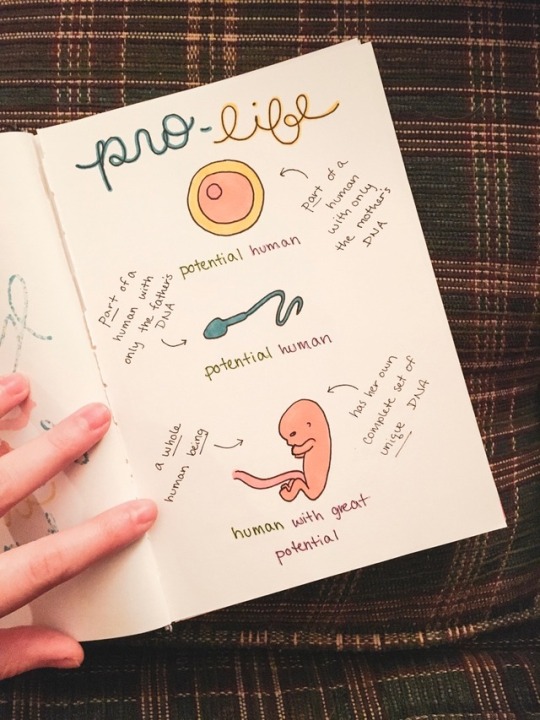 pro-life
part of a
human
with only
the mother's
DNA
potential human
part of a
human with
only the father's
DNA
potential human
has her own
complete set of
unique DNA
a whole
human being
human with great
potential